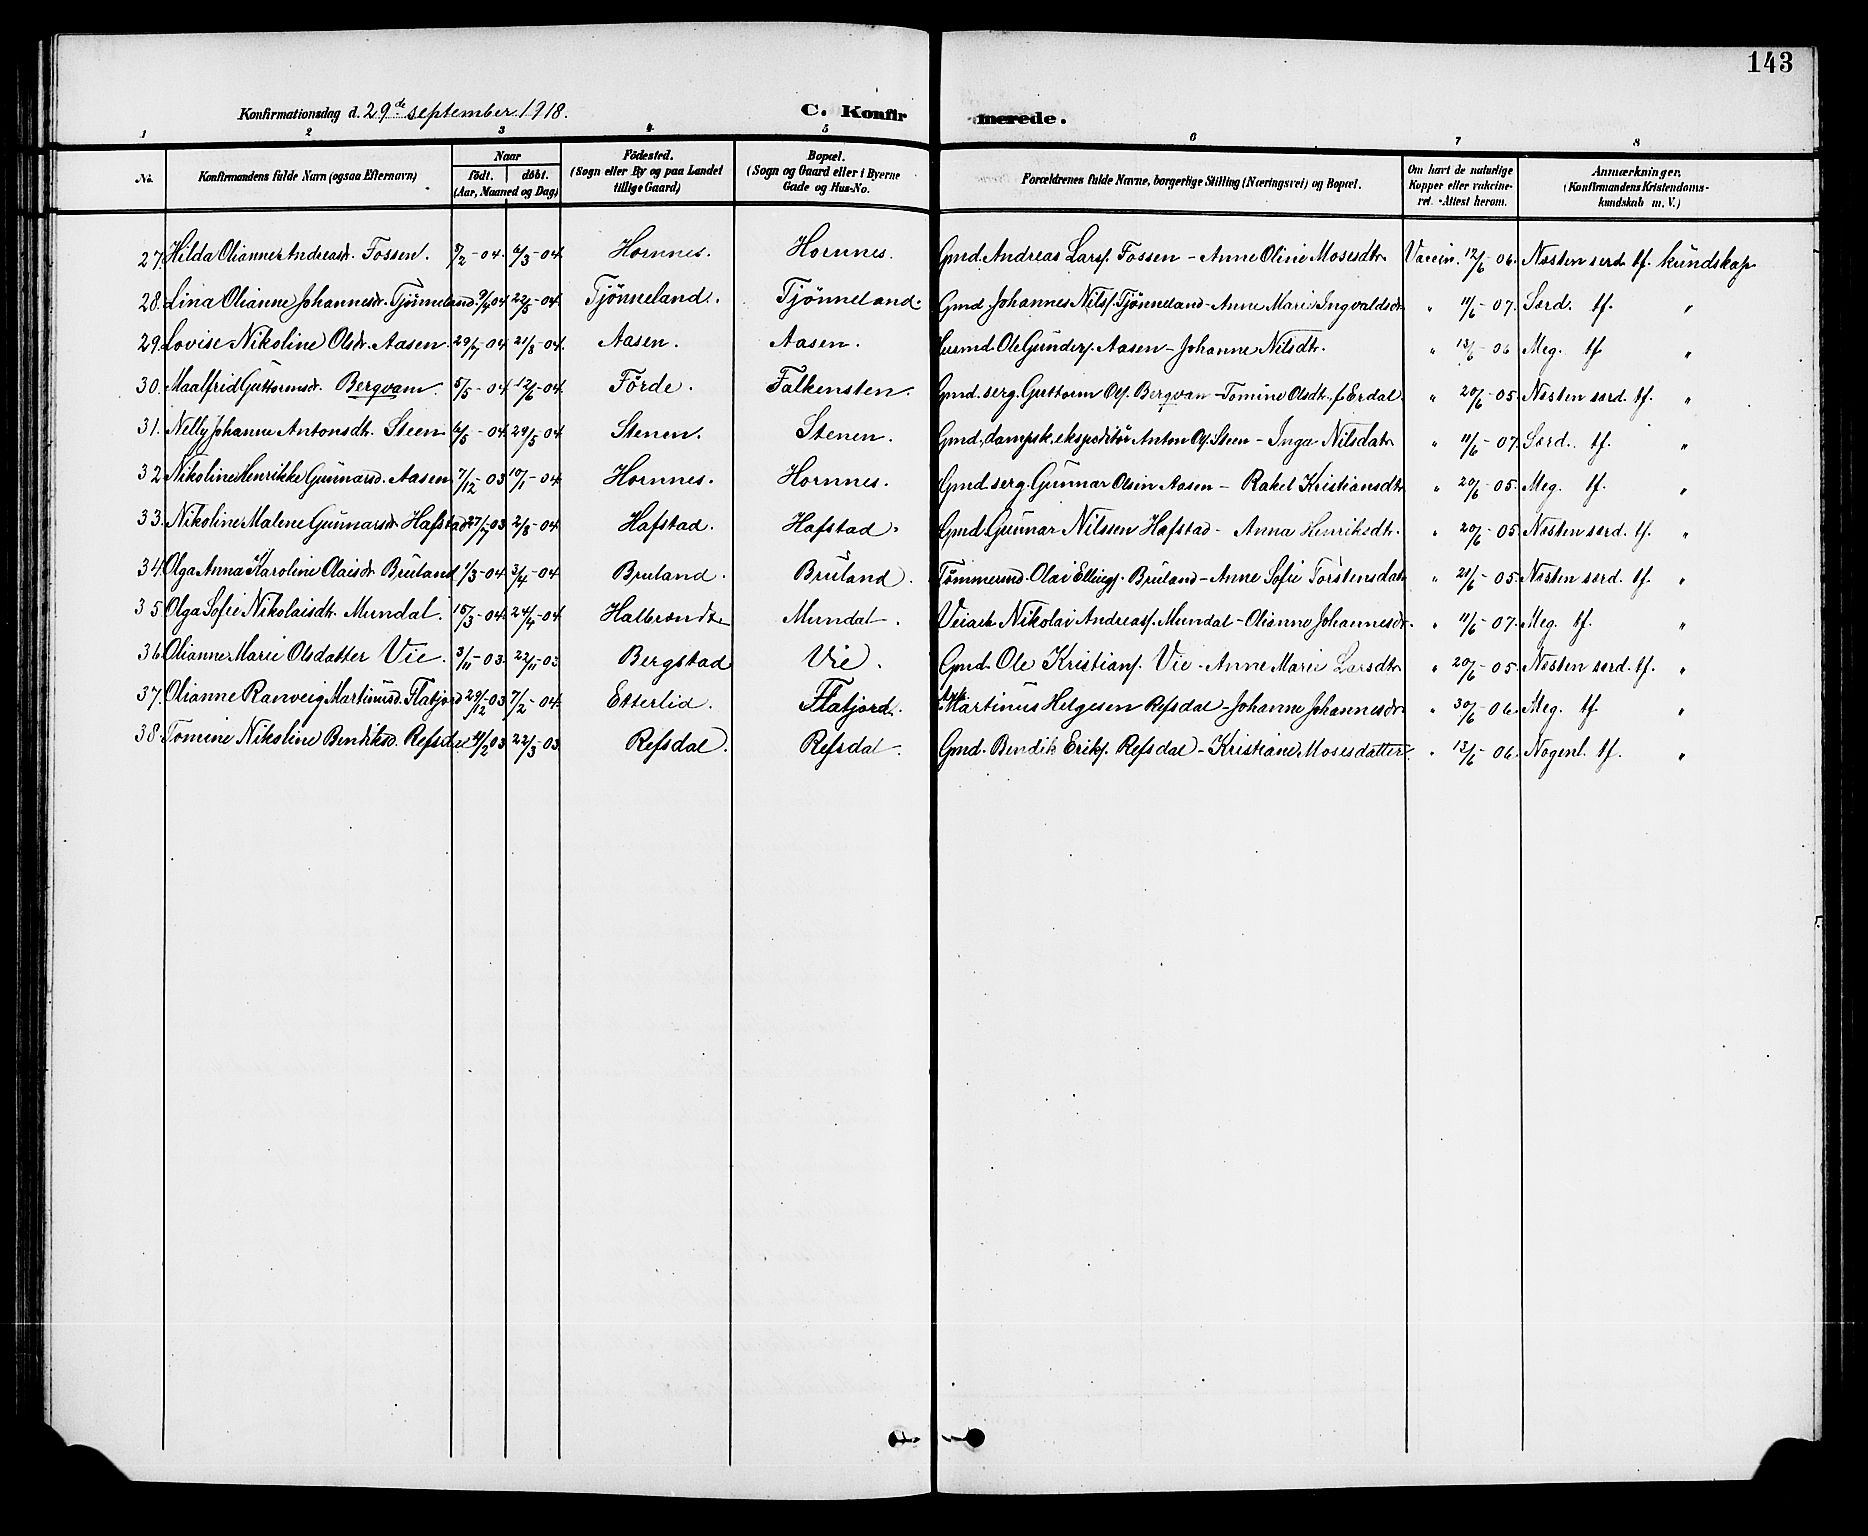 143
Konfirmationsdag d. 29de september 1918. C. Konfirmerede.
1 2 3 4 5 6 7 8
No. Konfirmandens fulde Navn (ogsaa Efternavn) Naar födt. döbt. (Aar, Maaned og Dag) Födested. (Sogn eller By og paa Landet tillige Gaard) Bopæl. (Sogn og Gaard eller i Byerne Gade og Hus-No. Forældrenes fulde Navne, borgerlige Stilling (Næringsvei) og Bopæl. Om havt de naturlige Kopper eller vakcineret. - Attest herom. Anmærkninger, (Konfirmandens Kristendomskundskab m. V.)
27. Hilda Olianne Andreasdr. Fossen. 5/2-04. 6/3-04 Hornnes. Hornnes. Gmd. Andreas Larsf. Fossen - Anne Oline Mosesdtr. Vaccin. 12/6 06. Næsten serd. tf. kundskap
28. Lina Olianne Johannesdr. Tjønneland. 9/4 04 22/5-04 Tjønneland. Tjønneland. Gmd. Johannes Nilsf. Tjønneland - Anne Marie Ingvaldsdtr. " 11/6-07. Serd. tf. "
29. Lovise Nikoline Olsdr. Aasen. 29/7-04 21/8-04. Aasen. Aasen. Husmd. Ole Gundersf. Aasen - Johanne Nilsdtr. " 13/6-06 Meg. tf "
30. Maalfrid Guttormsdr. Bergvam. 5/5-04 12/6-04. Förde. Falkensten. Gmd. serg. Guttorm Olsf. Bergvam - Tomine Olsdtr. f. Erdal. " 20/6-05. Næsten serd. tf. "
31. Nelly Johanne Antonsdtr. Steen 6/5-04. 29/5-04 Stenen. Stenen. Gmd., dampsk.ekspeditør Anton Olsf. Steen - Inga Nilsdatr. " 11/6-07. Serd. tf. "
32 Nikoline Henrikke Gunnarsd. Aasen 7/12-03 10/1-04. Hornnes. Hornnes. Gmd. serg. Gunnar Olsen Aasen - Rakel Kristiansdtr. " 20/6-05. Meg. tf. "
33. Nikoline Malene Gunnarsdr. Hafstad 27/7 03 2/8-04. Hafstad. Hafstad. Gmd. Gunnar Nilssen Hafstad - Anna Henriksdtr. " 20/6-05 Næsten serd. tf. "
34. Olga Anna Karoline Olaisdr. Bruland 1/3-04 3/4-04 Bruland. Bruland. Tømmermd. Olai Ellingsf. Bruland - Anne Sofie Torstensdatr. " 21/6-05. Næsten serd. tf. "
35. Olga Sofie Nikolaisdtr. Mundal. 15/3-04. 24/4-04 Halbrendt Mundal. Veiarb. Nikolai Andreasf. Mundal - Olianne Johannesdr. " 11/6-07. Meg. tf. "
36. Olianne Marie Olsdatter Vie. 3/11-03. 22/11 03 Bergstad Vie. Gmd. Ole Kristiansf. Vie - Anne Marie Larsdtr. " 20/6-05. Næsten serd. tf. "
37. Olianne Ranveig Martinusd. Flatjord 29/12 03 7/2-04. Etterlid. Flatjord. Martinus Helgesen Refsdal - Johanne Johannesdr. " 30/6-06. Meg. tf "
38. Tomine Nikoline Bendiksd. Refsdal 4/2 03 22/3-03 Refsdal. Refsdal. Gmd. Bendik Eriksf. Refsdal - Kristiane Mosesdatter. " 13/6-06. Nogenl. tf. "